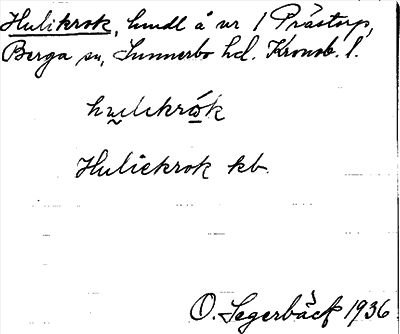 Hulikrok, hmdl å nr 1 Prästorp,
Berga sn, Sunnerbo hd. Kronob. l.
Huliekrok kb.
O. Segerbäck 1936